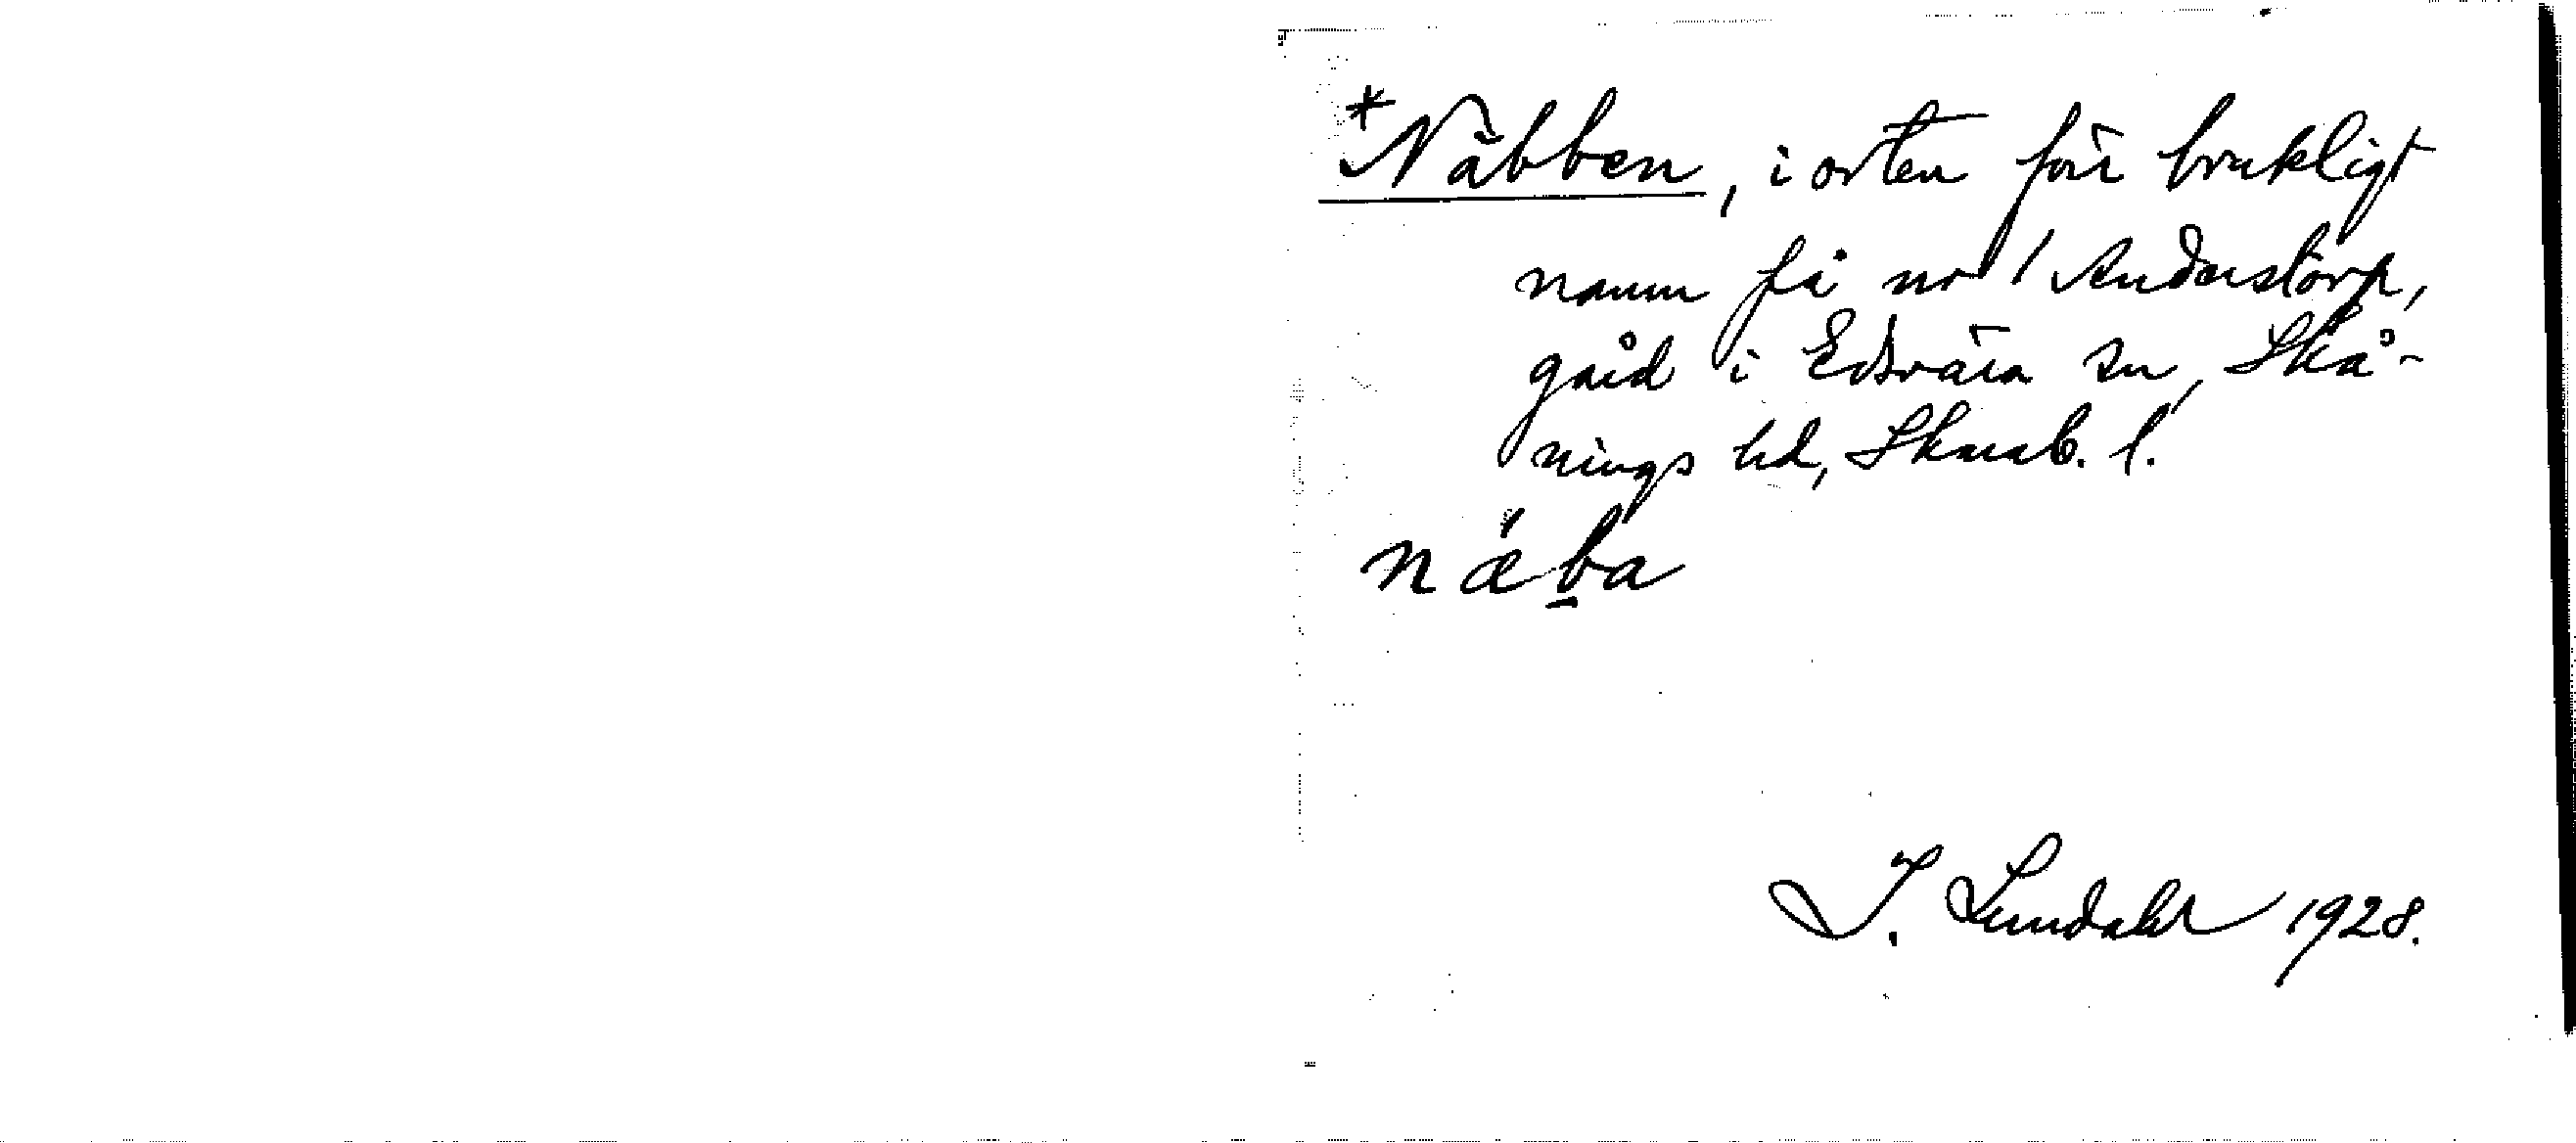 *Näbben, i orten förr brukligt
namn på nr 1 Anderstorp,
gård i Edsvära sn, Skå-
nings hd, Skarab. l.
næ´ba
I. Lundahl 1928.